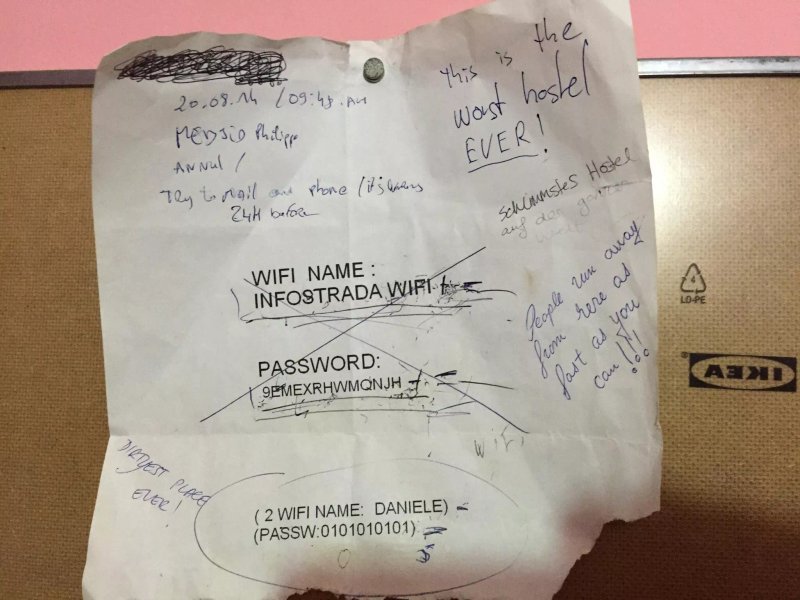 20.08.14 / 09:48 AM
Philipp
ANNUL /
Try to mail and phone / it's
24H before
This is the
worst hostel
EVER!
schlimmstes Hostel
auf der ganzen
Welt
People run away
from here as
fast as you
can!!!
WIFI NAME :
INFOSTRADA WIFI
PASSWORD:
9EMEXRHWMQNJH
wifi
DIRTYEST PLACE
EVER!
( 2 WIFI NAME: DANIELE)
(PASSW:0101010101)
4
LD-PE
IKEA